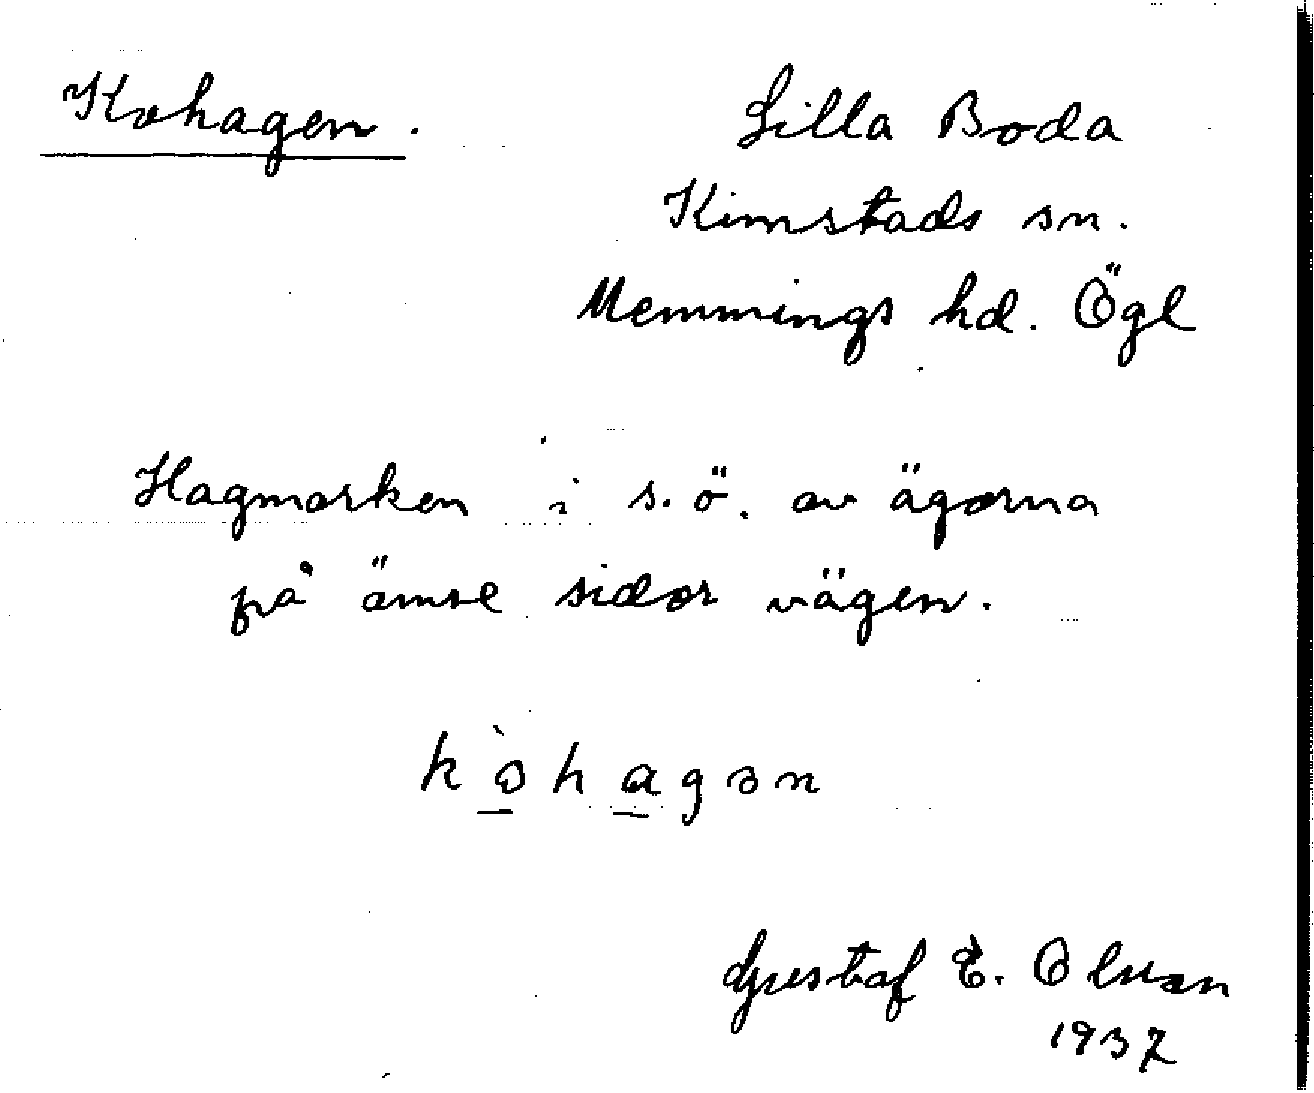 Kohagen.
Lilla Boda
Kimstads sn.
Memmings hd. Ögl
Hagmarken i s.ö. av ägorna
på ömse sidor vägen.
kòhagən
Gustaf E. Olsson
1937